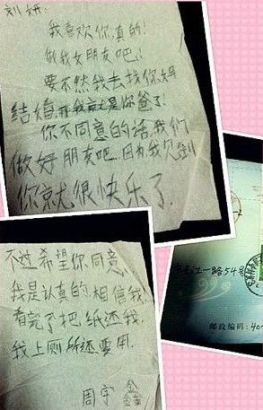 刘妍:
我喜欢你,真的!
做我女朋友吧!
要不然我去找你妈
结婚,我就是你爸了!
你不同意的话,我们
做好朋友吧,因为我到
你就很快乐了
不过希望你同意,
我是认真的,相信我,
看完了把纸还我,
我上厕所还要用.
周宇
江一路54号
邮政编码:40